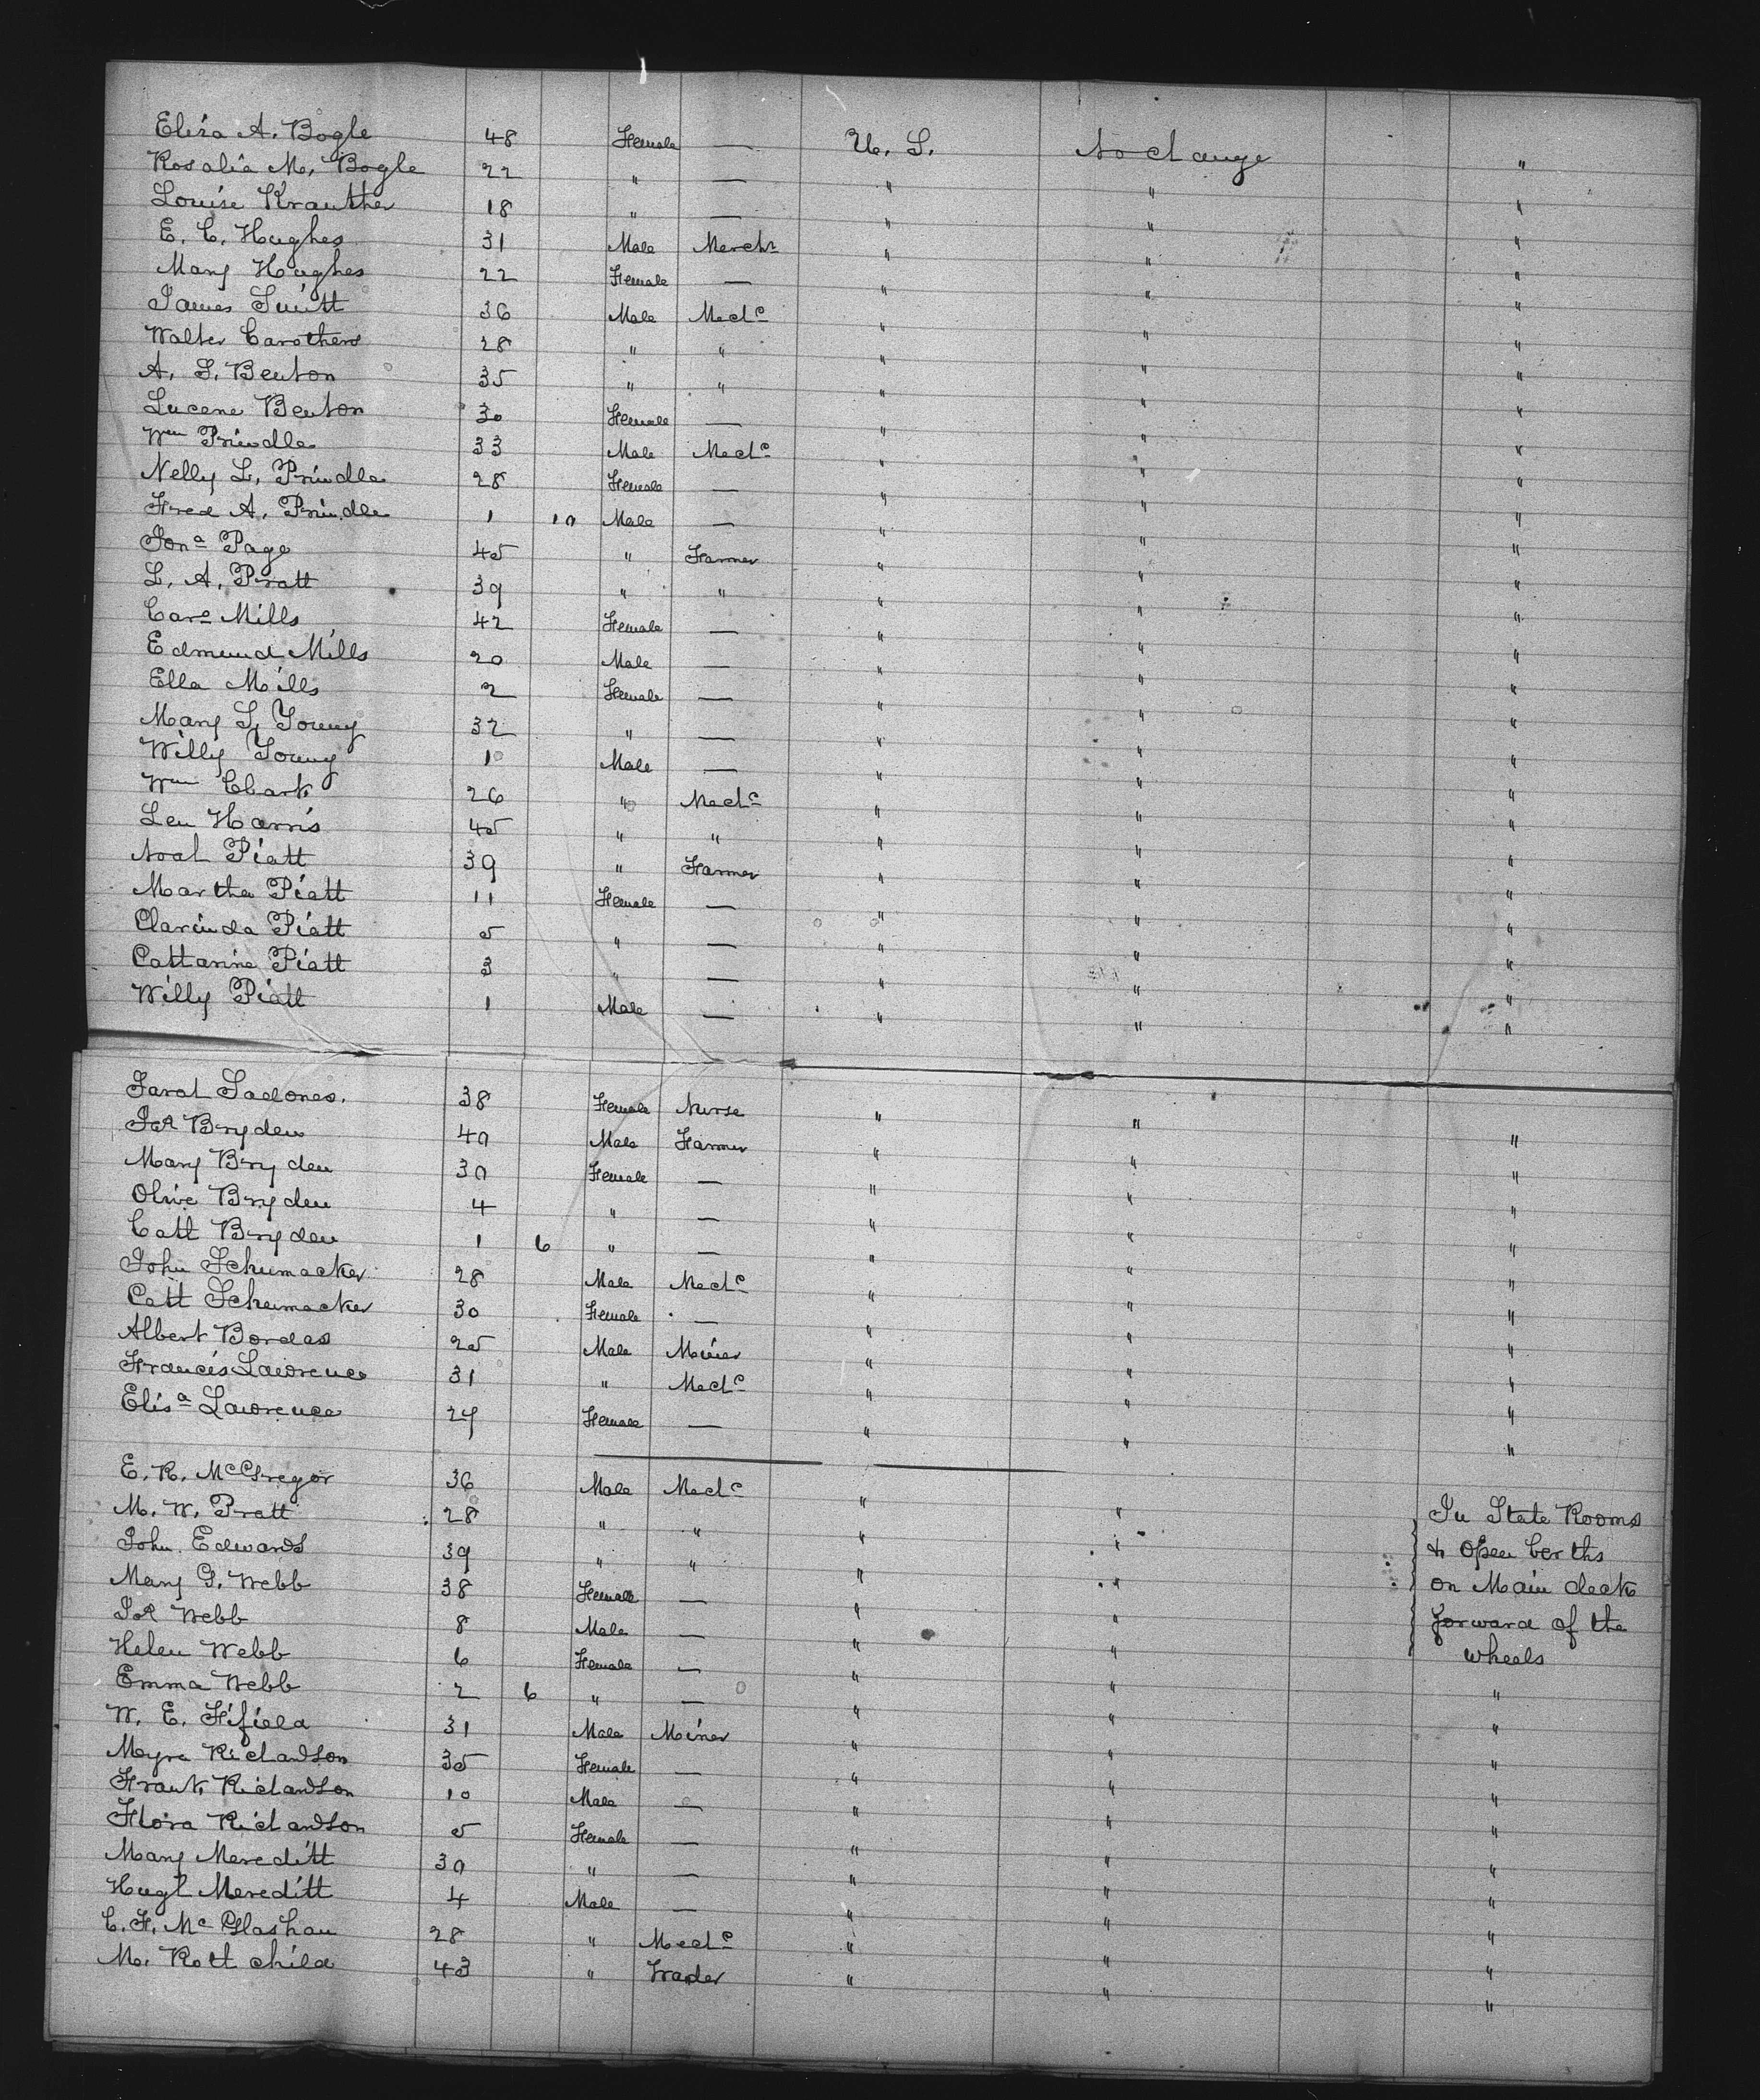 Eliza A. Bogle 48 Female — U. S. No change "
Rosalia M. Bogle 22 " — " " "
Louise Krauther 18 " — " " "
E. C. Hughes 31 Male Mercht " " "
Mary Hughes 22 Female — " " "
James Smith 36 Male Mechc " " "
Walter Carothers 28 " " " " "
A. S. Benton 35 " " " " "
Lucene Benton 30 Female — " " "
Wm Prindle 33 Male Mechc " " "
Nelly L. Prindle 28 Female — " " "
Fred A. Prindle 1 10 Male — " " "
Jona Page 45 " Farmer " " "
L. A. Pratt 39 " " " " "
Caro Mills 42 Female — " " "
Edmund Mills 20 Male — " " "
Ella Mills 2 Female — " " "
Mary S. Young 32 " — " " "
Willy Young 10 Male — " " "
Wm Clark 26 " Mechc " " "
Len Harris 45 " " " " "
Noah Piatt 39 " Farmer " " "
Martha Piatt 11 Female — " " "
Clarinda Piatt 5 " — " " "
Catharine Piatt 3 " — " " "
Willy Piatt 1 Male — " " "
Sarah Sadones. 38 Female Nurse " "
Jos Bryden 40 Male Farmer " " "
Mary Bryden 30 Female — " " "
Olive Bryden 4 " — " " "
Cath Bryden 1 6 " — " " "
John Schumacker 28 Male Mechc " " "
Cath Schumacker 30 Female — " " "
Albert Bordas 25 Male Miner " " "
Francis Lawrence 31 " Mechc " " "
Elisa Lawrence 29 Female — " " "
E. R. McGregor 36 Male Mechc " "
M. W. Pratt 28 " " " " In State Rooms
John Edwards 39 " " " " & open berths
Mary G. Webb 38 Female — " " on Main deck
Jos Webb 8 Male — " " forward of the
Helen Webb 6 Female — " " wheels
Emma Webb 2 6 " — " " "
W. E. Fifield 31 Male Miner " " "
Myra Richardson 35 Female — " " "
Frank Richardson 10 Male — " " "
Flora Richardson 5 Female — " " "
Mary Meredith 30 " — " " "
Hugh Meredith 4 Male — " " "
C. F. McGlashan 28 " Mechc " " "
M. Rothchild 43 " Trader " " "